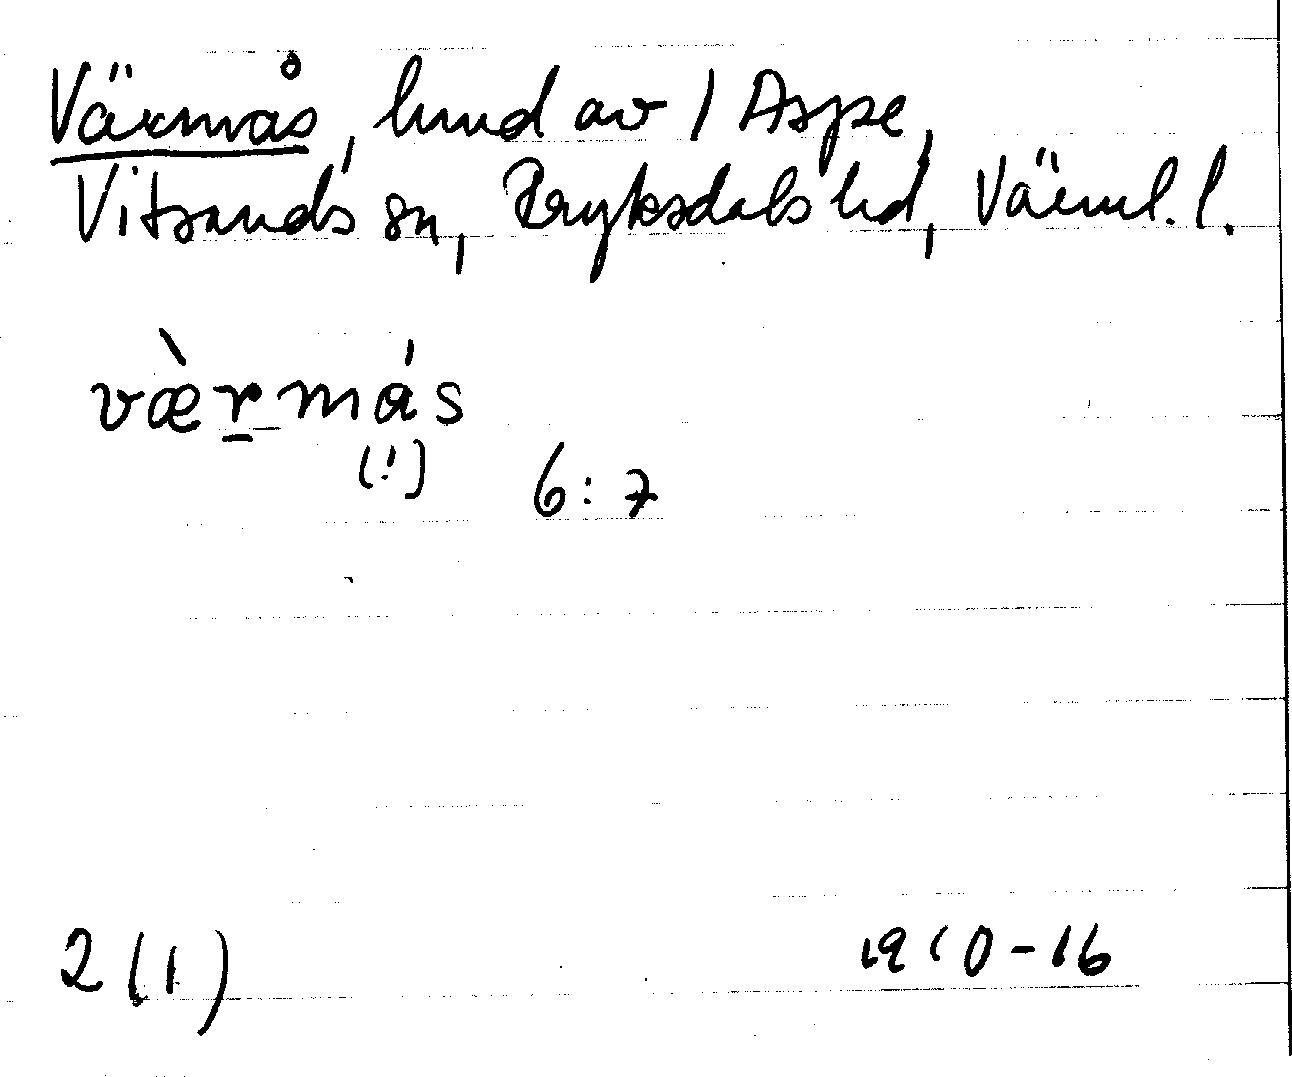 Värmås, hmd av 1 Aspe,
Vitsands sn, Fryksdals hd, Värml. l.
væ̀r̲más
(!)
6:7
2 (1)
1910-16